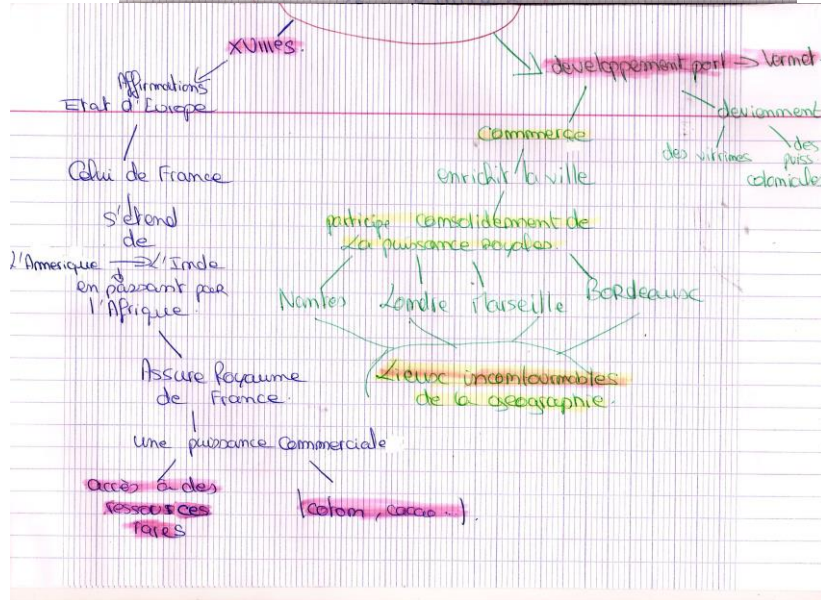 XVIIIes.
Affirmations
Etat d'Europe
Celui de France
s'étend
de
L'Amerique → L'Inde
en passant par
l'Afrique.
Assure Royaume
de France.
une puissance Commerciale
accès à des
ressources
rares
(coton, cacao..).
developpement port → Vernet
deviennent
des vitrines
des
puiss
coloniale
Commerce
enrichit la ville
participe consolidement de
La puissance royales.
Nantes Londre Marseille Bordeaux
Lieux incontournables
de la géographie.